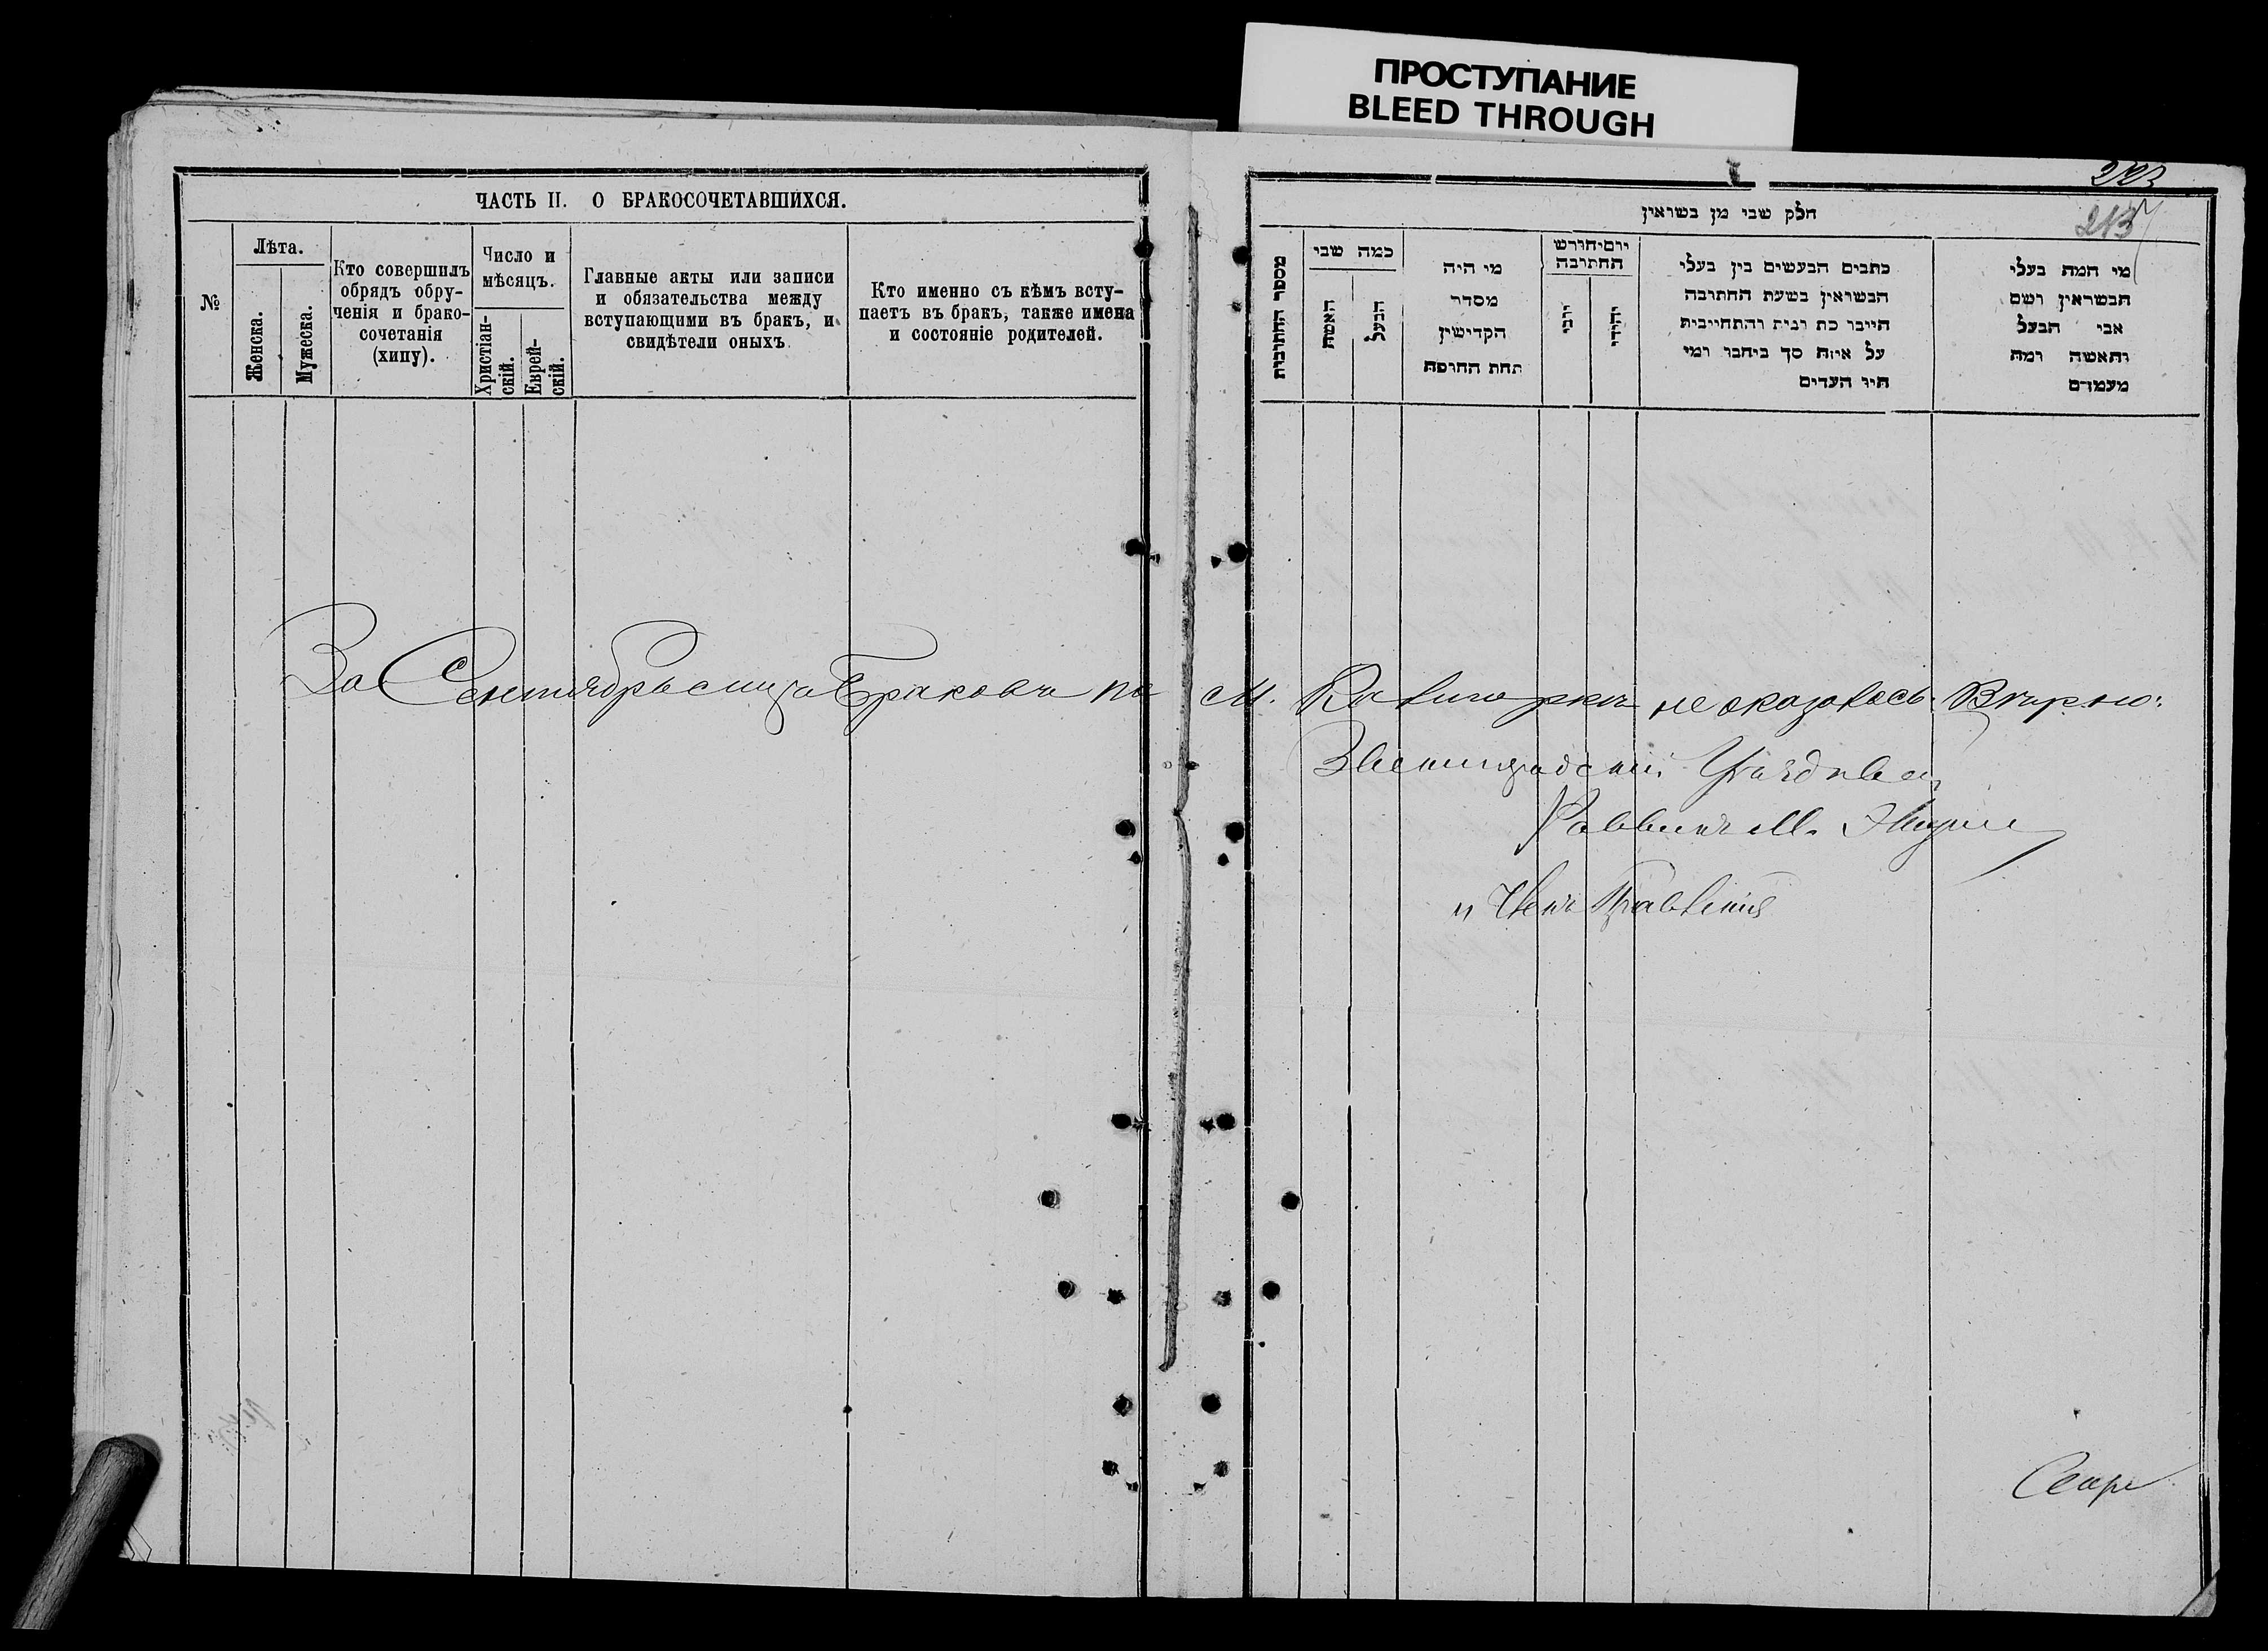 ПРОСТУПАНИЕ
BLEED THROUGH
ЧАСТЬ II. О БРАКОСОЧЕТАВШИХСЯ.
№
Лѣта.
Женска.
Мужеска.
Кто совершилъ
обрядъ обру-
ченія и брако-
сочетанія
(хипу).
Число и
мѣсяцъ.
Христіан-
скій.
Еврей-
скій.
Главные акты или записи
и обязательства между
вступающими въ бракъ, и
свидѣтели оныхъ
Кто именно съ кѣмъ всту-
паетъ въ бракъ, также имена
и состояніе родителей.
213
חלק שני מן נשואין
מספר החתונות
כמה שני
האשה
הבעל
מי היה
מסדר
הקדישין
תחת החופה
יום וחודש
החתונה
יוני
יהודי
כתבים הנעשים בין בעלי
הנשואין בשעת החתונה
היינו כת ונית והתחייבות
על איזה סך ביחבר ומי
היו העדים
מי המה בעלי
הנשואין ושם
אבי הבעל
והאשה ומה
מעמדם
За Сентябрь сица Браковъ по м. не оказалось. Вѣрно:
Звенигородскій
Раввинъ М.
и Членъ Правленія